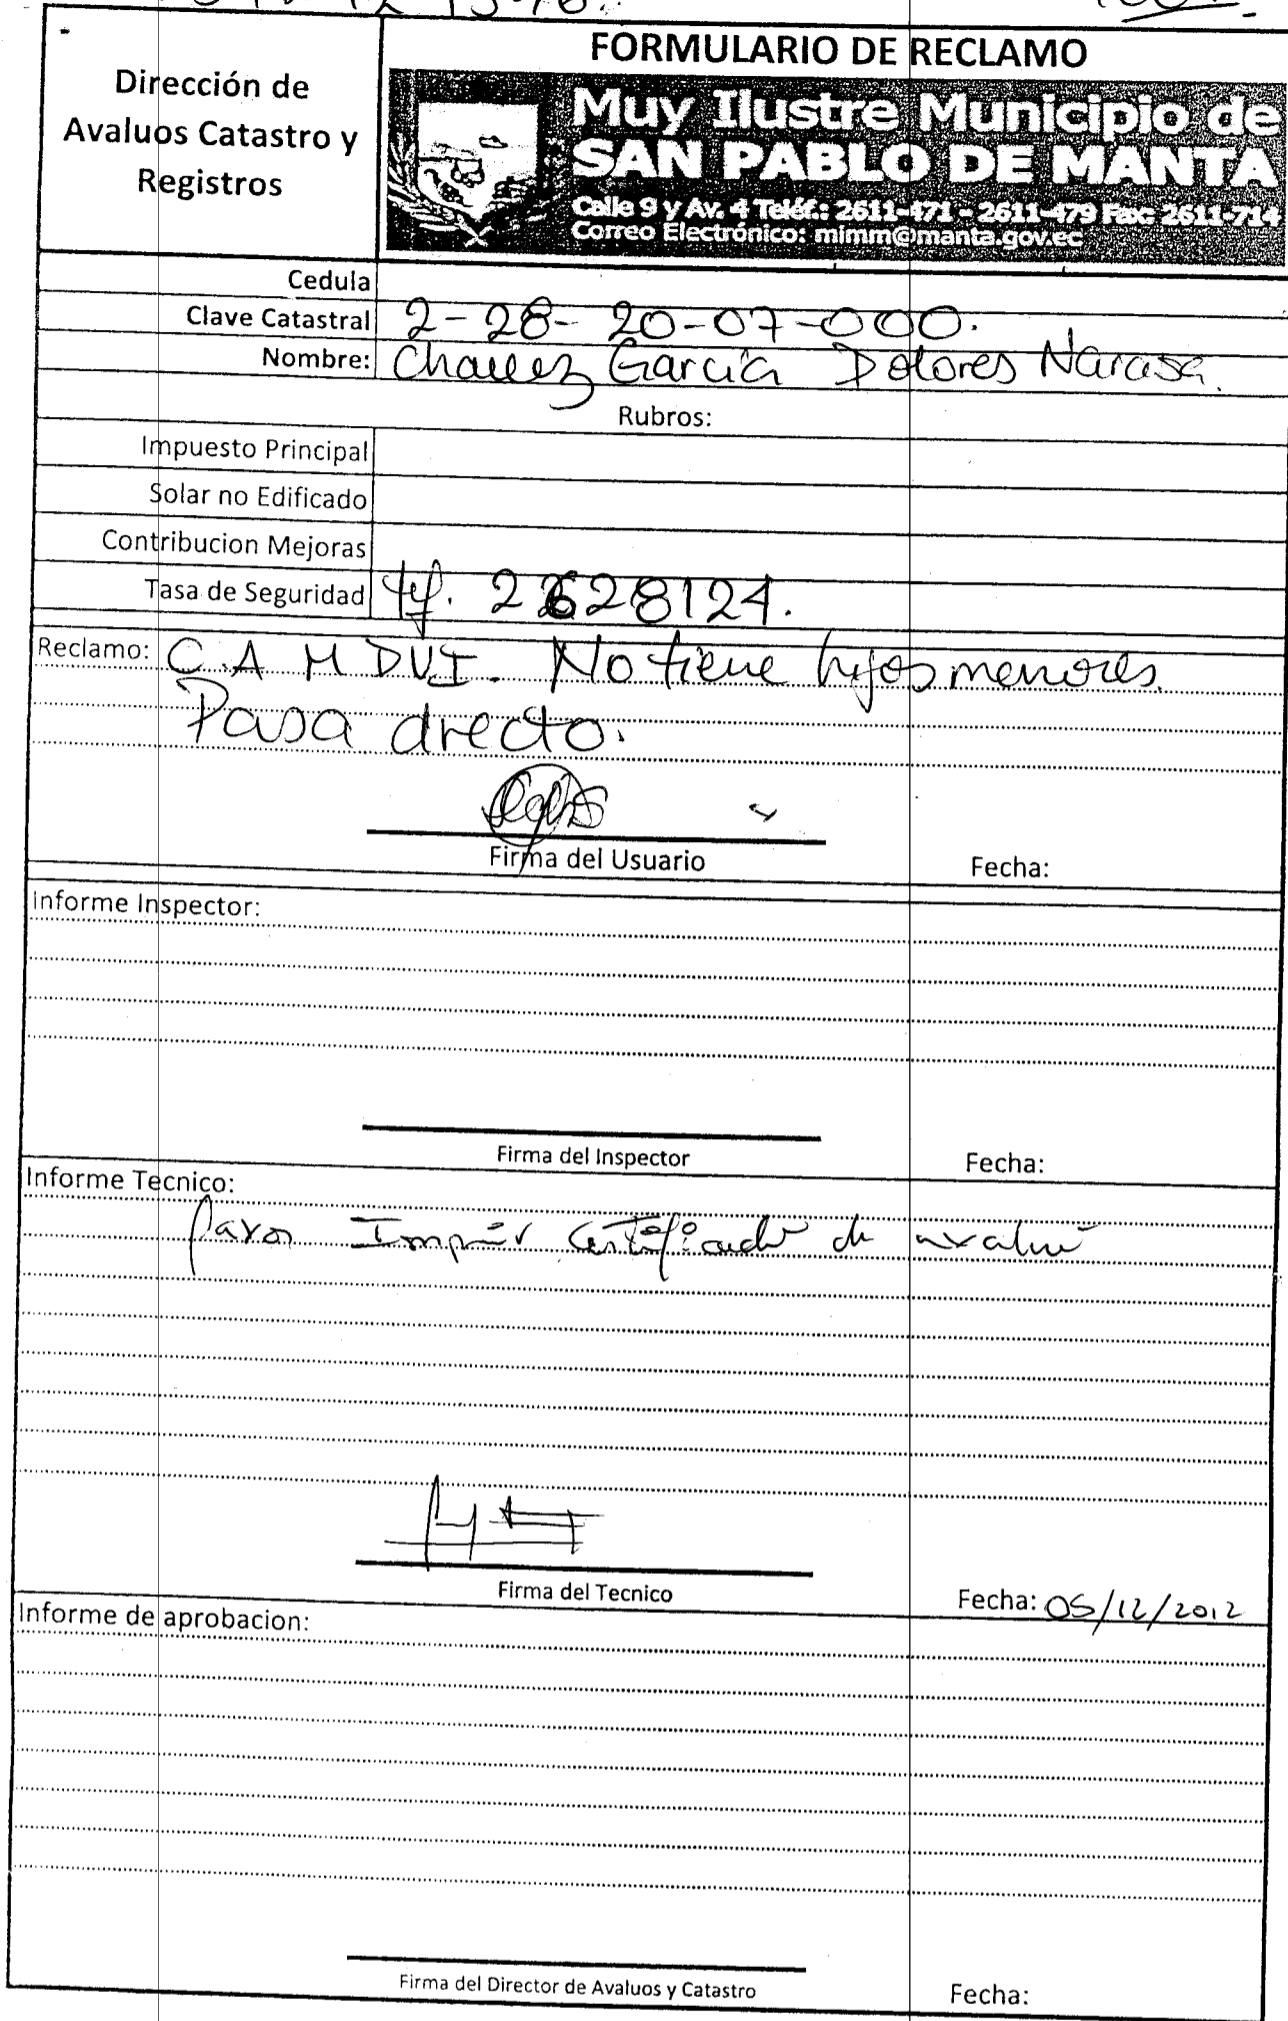 FORMULARIO DE RECLAMO
Dirección de
Avaluos Catastro y
Registros
Muy Ilustre Municipio de
SAN PABLO DE MANTA
Calle 9 y Av. 4 Teléf.: 2611-471 - 2611-479 Fax: 2611-714
Correo Electrónico: mimm@manta.gov.ec
Cedula
Clave Catastral 2-28-20-07-000.
Nombre: Chavez García Dolores Narcisa.
Rubros:
Impuesto Principal
Solar no Edificado
Contribucion Mejoras
Tasa de Seguridad tlf. 2628124.
Reclamo: C.A MDUI. No tiene hijos menores.
Pasa directo.
Firma del Usuario Fecha:
Informe Inspector:
Firma del Inspector Fecha:
Informe Tecnico:
favor Imprimir Certificado de avaluo
Firma del Tecnico Fecha: 05/12/2012
Informe de aprobacion:
Firma del Director de Avaluos y Catastro Fecha: